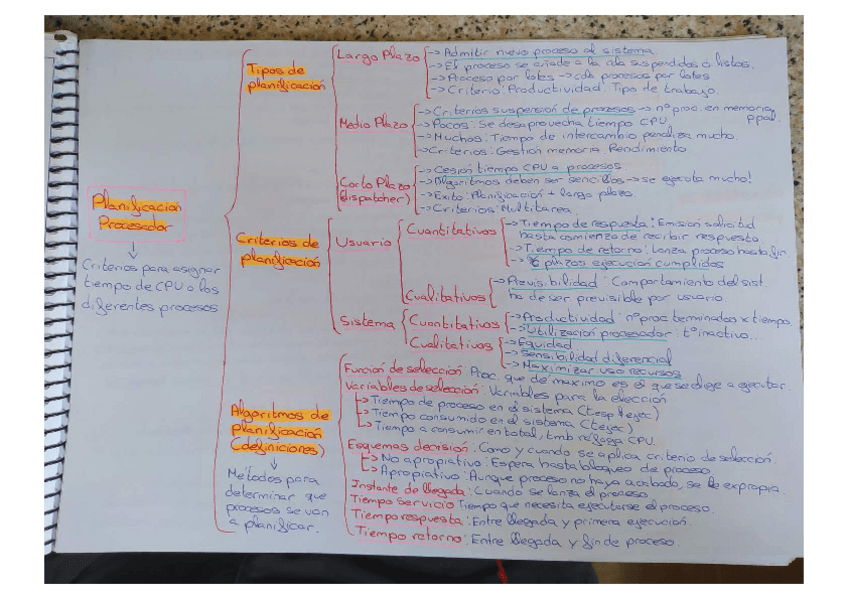 Planificación
Procesador
Criterios para asignar
tiempo de CPU a los
diferentes procesos
Tipos de
planificación
Largo Plazo
→Admitir nuevo proceso al sistema.
→El proceso se añade a la cola suspendidos o listos.
→Proceso por lotes → cola procesos por lotes
→Criterio: Productividad. Tipo de trabajo.
Medio Plazo
→Criterios suspensión de procesos → nº proc. en memoria
ppal.
→Pocos: Se desaprovecha tiempo CPU.
→Muchos: Tiempo de intercambio penaliza mucho.
→Criterios: Gestión memoria Rendimiento.
Corto Plazo
(dispatcher)
→Cesión tiempo CPU a procesos
→Algoritmos deben ser sencillos → se ejecuta mucho!
→Exito: Planificación + largo plazo.
→Criterios: Multitarea.
Criterios de
planificación
Usuario
Cuantitativos
→Tiempo de respuesta: Emisión solicitud
hasta comienzo de recibir respuesta.
→Tiempo de retorno: Lanza proceso hasta fin.
→% plazos ejecución cumplidos
Cualitativos
→Previsibilidad: Comportamiento del sist.
ha de ser previsible por usuario.
Sistema
Cuantitativos
→Productividad: nºproc terminados x tiempo
→Utilización procesador: tº inactivo...
Cualitativos
→Equidad
→Sensibilidad diferencial
→Maximizar uso recursos
Algoritmos de
planificación
(definiciones)
Métodos para
determinar que
procesos se van
a planificar.
Función de selección: Proc. que de máximo es el que se elige a ejecutar.
Variables de selección: Variables para la elección
→Tiempo de proceso en el sistema (tesp y ejec)
→Tiempo consumido en el sistema (tejec)
→Tiempo a consumir en total, tmb ráfaga CPU.
Esquemas decisión: Como y cuando se aplica criterio de selección.
→No apropiativo: Espera hasta bloqueo de proceso
→Apropiativo: Aunque proceso no haya acabado, se le expropia.
Instante de llegada: Cuando se lanza el proceso
Tiempo servicio: Tiempo que necesita ejecutarse el proceso.
Tiempo respuesta: Entre llegada y primera ejecución.
Tiempo retorno: Entre llegada y fin de proceso.